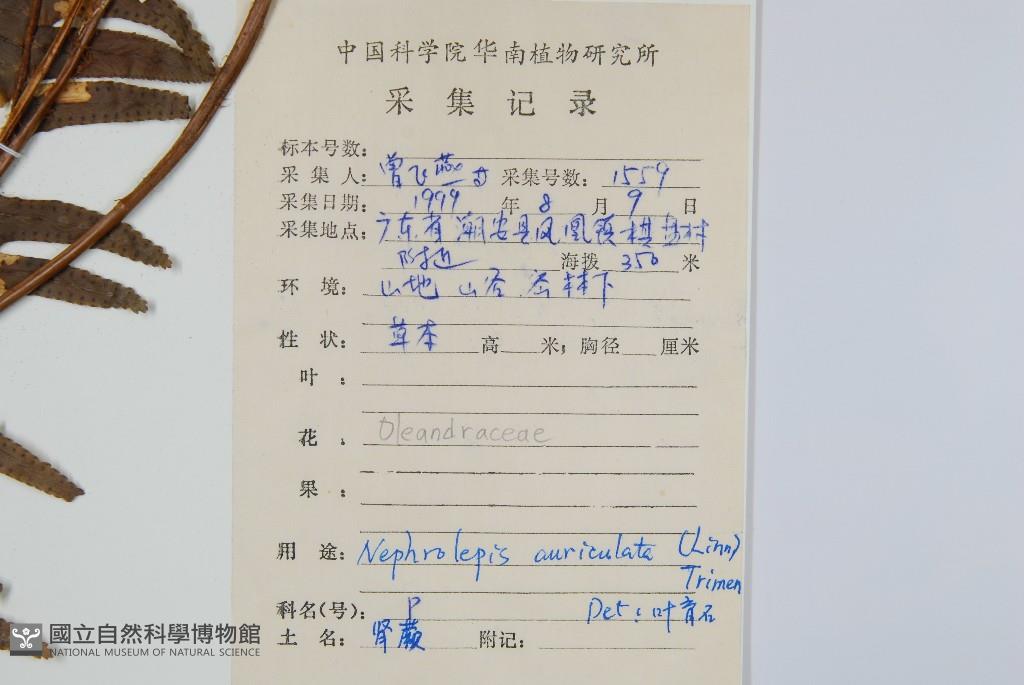 中国科学院华南植物研究所
采集记录
标本号数：
采集人：曾飞燕等 采集号数：1559
采集日期：1999年8月9日
采集地点：广东省潮安县凤凰镇棋盘村
附近 海拨350米
环境：山地山谷密林下
性状：草本 高 米；胸径 厘米
叶：
花： Oleandraceae
果：
用途：Nephrolepis auriculata (Linn)
Trimen
科名(号)：P Det：叶育石
土名：肾蕨 附记：
國立自然科學博物館
NATIONAL MUSEUM OF NATURAL SCIENCE